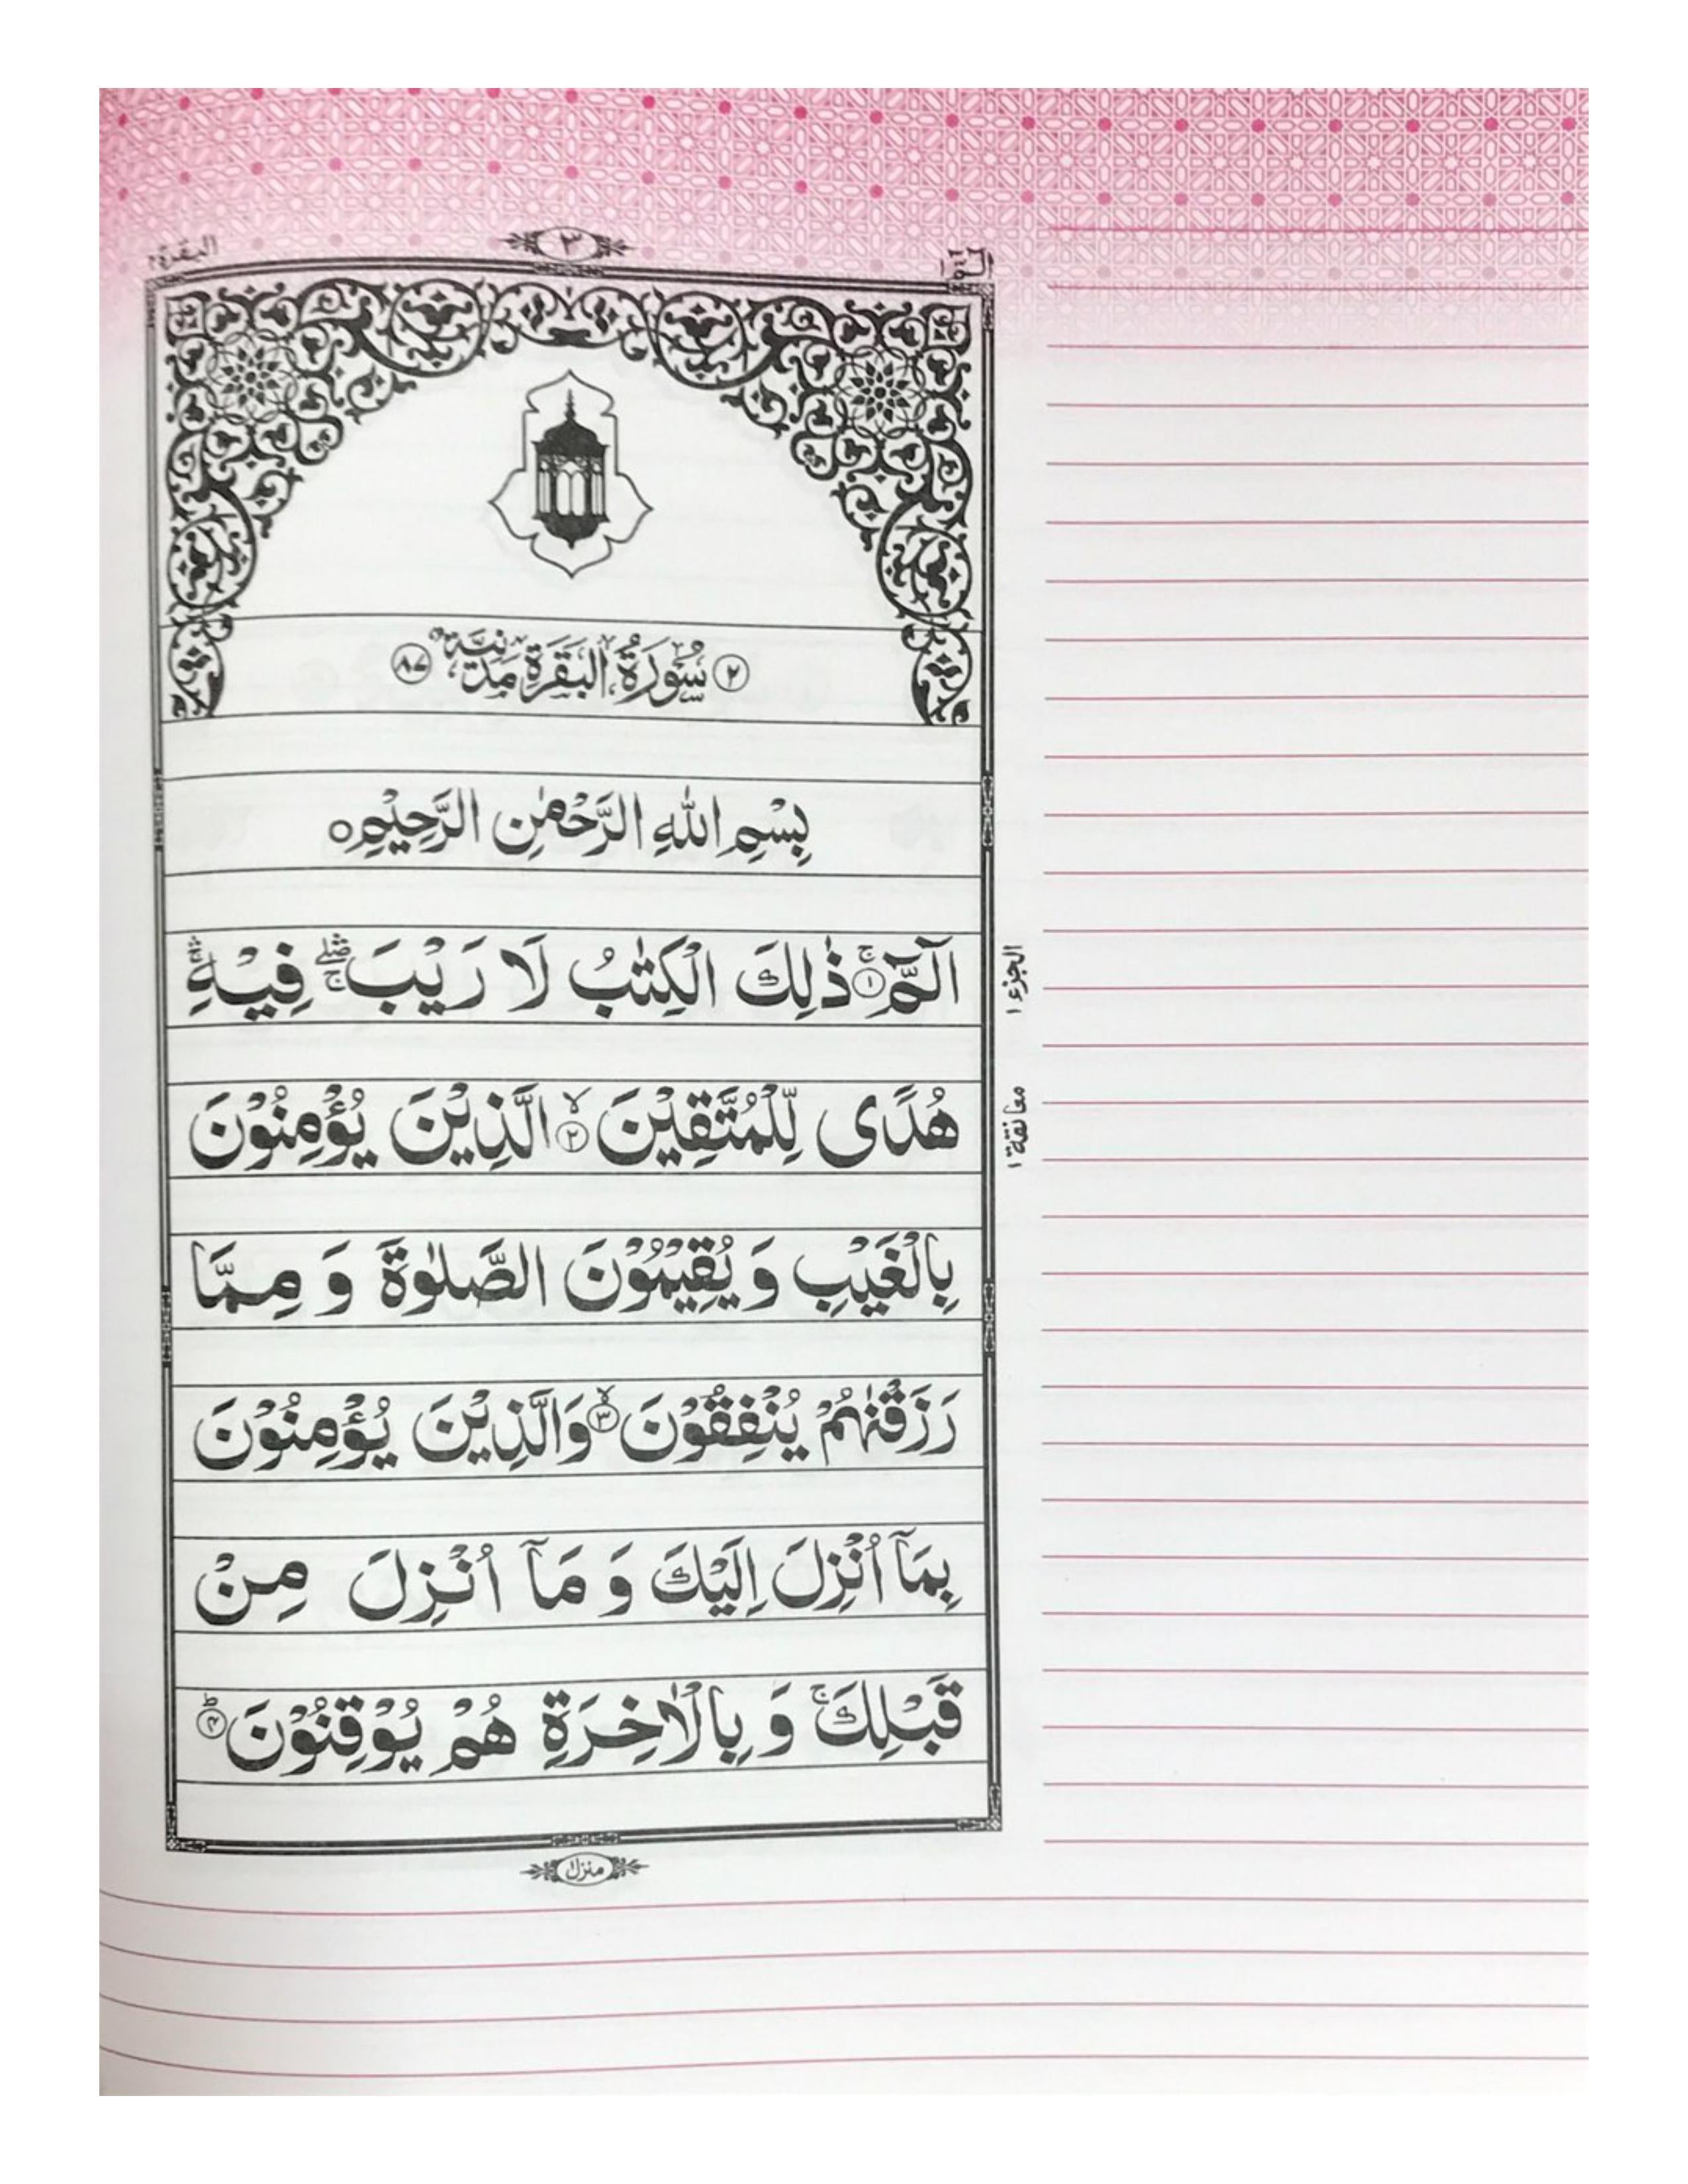 البقرة ٢
٣
الٓمّٓ ١
٢ سُوْرَةُ الْبَقَرَةِ مَدَنِيَّةٌ ٨٧
بِسْمِ اللّٰهِ الرَّحْمٰنِ الرَّحِيْمِ○
الٓمّٓ ۚ﴿١﴾ ذٰلِكَ الْكِتٰبُ لَا رَيْبَ ۛۖۚ فِيْهِ ۛۚ
هُدًى لِّلْمُتَّقِيْنَ ۙ﴿٢﴾ الَّذِيْنَ يُؤْمِنُوْنَ
بِالْغَيْبِ وَ يُقِيْمُوْنَ الصَّلٰوةَ وَ مِمَّا
رَزَقْنٰهُمْ يُنْفِقُوْنَ ۙ﴿٣﴾ وَالَّذِيْنَ يُؤْمِنُوْنَ
بِمَآ اُنْزِلَ اِلَيْكَ وَ مَآ اُنْزِلَ مِنْ
قَبْلِكَ ۚ وَ بِالْاٰخِرَةِ هُمْ يُوْقِنُوْنَ ؕ﴿٤﴾
الجزء ١
معانقة ١
منزل ١